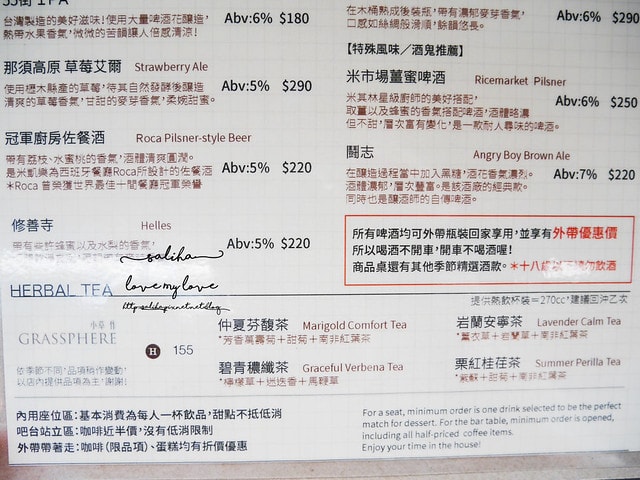 台灣製造的美好滋味!使用大量啤酒花釀造,
熱帶水果香氣,微微的苦韻讓人倍感清涼!
Abv:6% $180
那須高原 草莓艾爾 Strawberry Ale
使用櫪木縣產的草莓,待其自然發酵後釀造
清爽的草莓香氣,甘甜的麥芽香氣,柔婉甜蜜。
Abv:5% $290
冠軍廚房佐餐酒 Roca Pilsner-style Beer
帶有荔枝、水蜜桃的香氣,酒體清爽圓潤。
是米凱樂為西班牙餐廳Roca所設計的佐餐酒
*Roca 曾榮獲世界最佳十間餐廳冠軍榮譽
Abv:5% $220
修善寺 Helles
帶有些許蜂蜜以及水梨的香氣,
Abv:5% $220
在木桶熟成後裝瓶,帶有濃郁麥芽香氣,
口感如絲綢般滑順,餘韻悠長。
Abv:6% $290
【特殊風味/酒鬼推薦】
米市場薑蜜啤酒 Ricemarket Pilsner
米其林星級廚師的美好搭配,
取薑以及蜂蜜的香氣搭配啤酒,酒體略濃
但不甜,層次富有變化,是一款耐人尋味的啤酒。
Abv:6% $250
鬪志 Angry Boy Brown Ale
在釀造過程當中加入黑糖,酒花香氣濃烈。
酒體濃郁,層次豐富。是該酒廠的經典款。
同時也是釀酒師的自傳啤酒。
Abv:7% $220
所有啤酒均可外帶瓶裝回家享用,並享有外帶優惠價
所以喝酒不開車,開車不喝酒喔!
商品桌還有其他季節精選酒款。*十八歲以下請勿飲酒
saliha
love my love
HERBAL TEA
提供熱飲杯裝=270cc,建議回沖乙次
小草 作
GRASSPHERE
H 155
依季節不同,品項稍作變動,
以店內提供品項為主,謝謝!
仲夏芬馥茶 Marigold Comfort Tea
*芳香萬壽菊+甜菊+南非紅葉茶
碧青穠纖茶 Graceful Verbena Tea
*檸檬草+迷迭香+馬鞭草
岩蘭安寧茶 Lavender Calm Tea
*薰衣草+岩蘭草+南非紅葉茶
栗紅桂荏茶 Summer Perilla Tea
*紫蘇+甜菊+南非紅葉茶
內用座位區:基本消費為每人一杯飲品,甜點不抵低消
吧台站立區:咖啡近半價,沒有低消限制
外帶帶著走:咖啡(限品項)、蛋糕均有折價優惠
For a seat, minimum order is one drink selected to be the perfect
match for dessert. For the bar table, minimum order is opened,
including all half-priced coffee items.
Enjoy your time in the house!